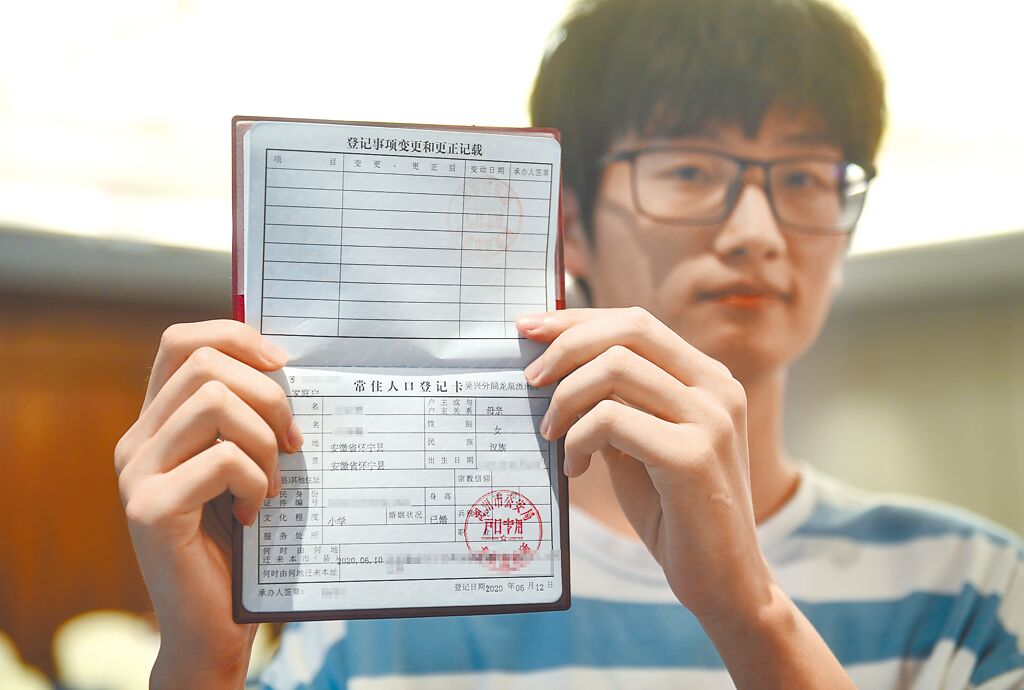 登记事项变更和更正记载
项 目 变 更 、 更 正 后 变动日期 承办人签章
常住人口登记卡 吴兴分局龙泉派出所
名 户主或与户主关系 母亲
名 性 别 女
地 安徽省怀宁县 民 族 汉族
贯 安徽省怀宁县 出生日期
县)其他住址 宗教信仰
民身份证件编号 身 高
文化程度 小学 婚姻状况 已婚 兵
服务处所 职
何时由何地迁来本市(县) 2020.06.10
何时由何地迁来本址
承办人签章: 登记日期: 2020 年 06 月 12 日
州市公安局
户口专用